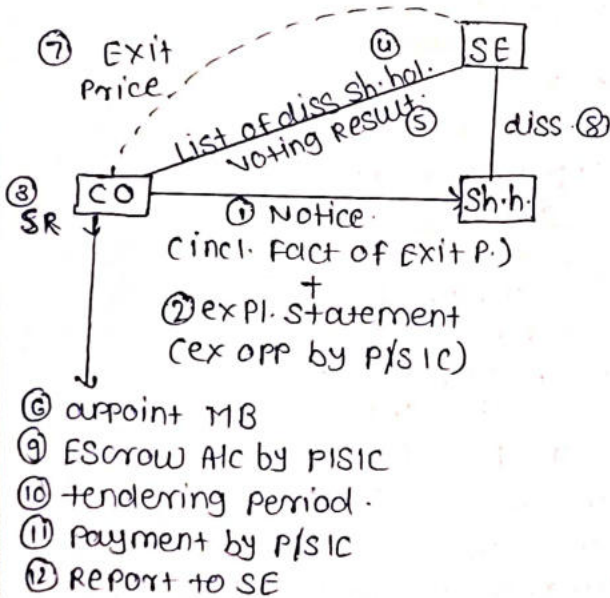 ⑦ Exit
Price
④
SE
List of diss sh.hol.
Voting Result.
⑤
diss. ⑧
③
SR
CO
Sh.h.
① Notice.
(incl. Fact of Exit P.)
+
② expl. Statement
(ex opp by P/SIC)
⑥ appoint MB
⑨ Escrow A/c by P/SIC
⑩ tendering period.
⑪ Payment by P/SIC
⑫ Report to SE